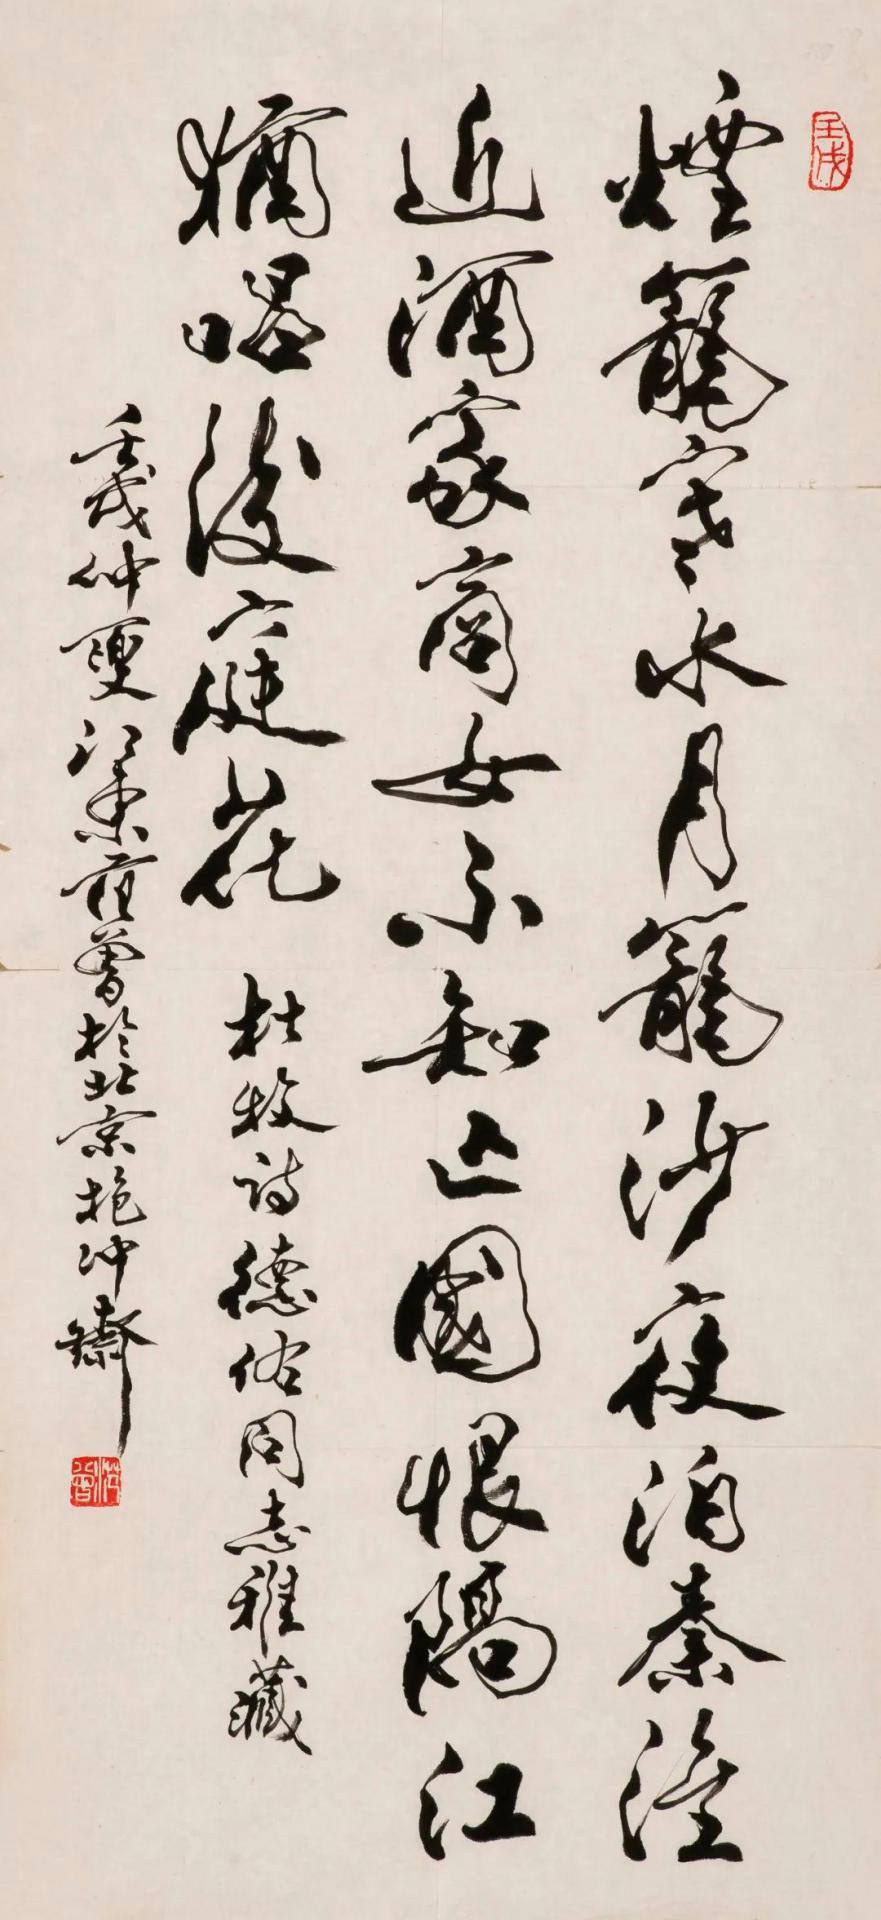 壬戌
煙籠寒水月籠沙夜泊秦淮
近酒家商女不知亡國恨隔江
猶唱後庭花 杜牧詩 德佑同志雅藏
壬戌仲夏江東范曾於北京抱沖齋
范曾